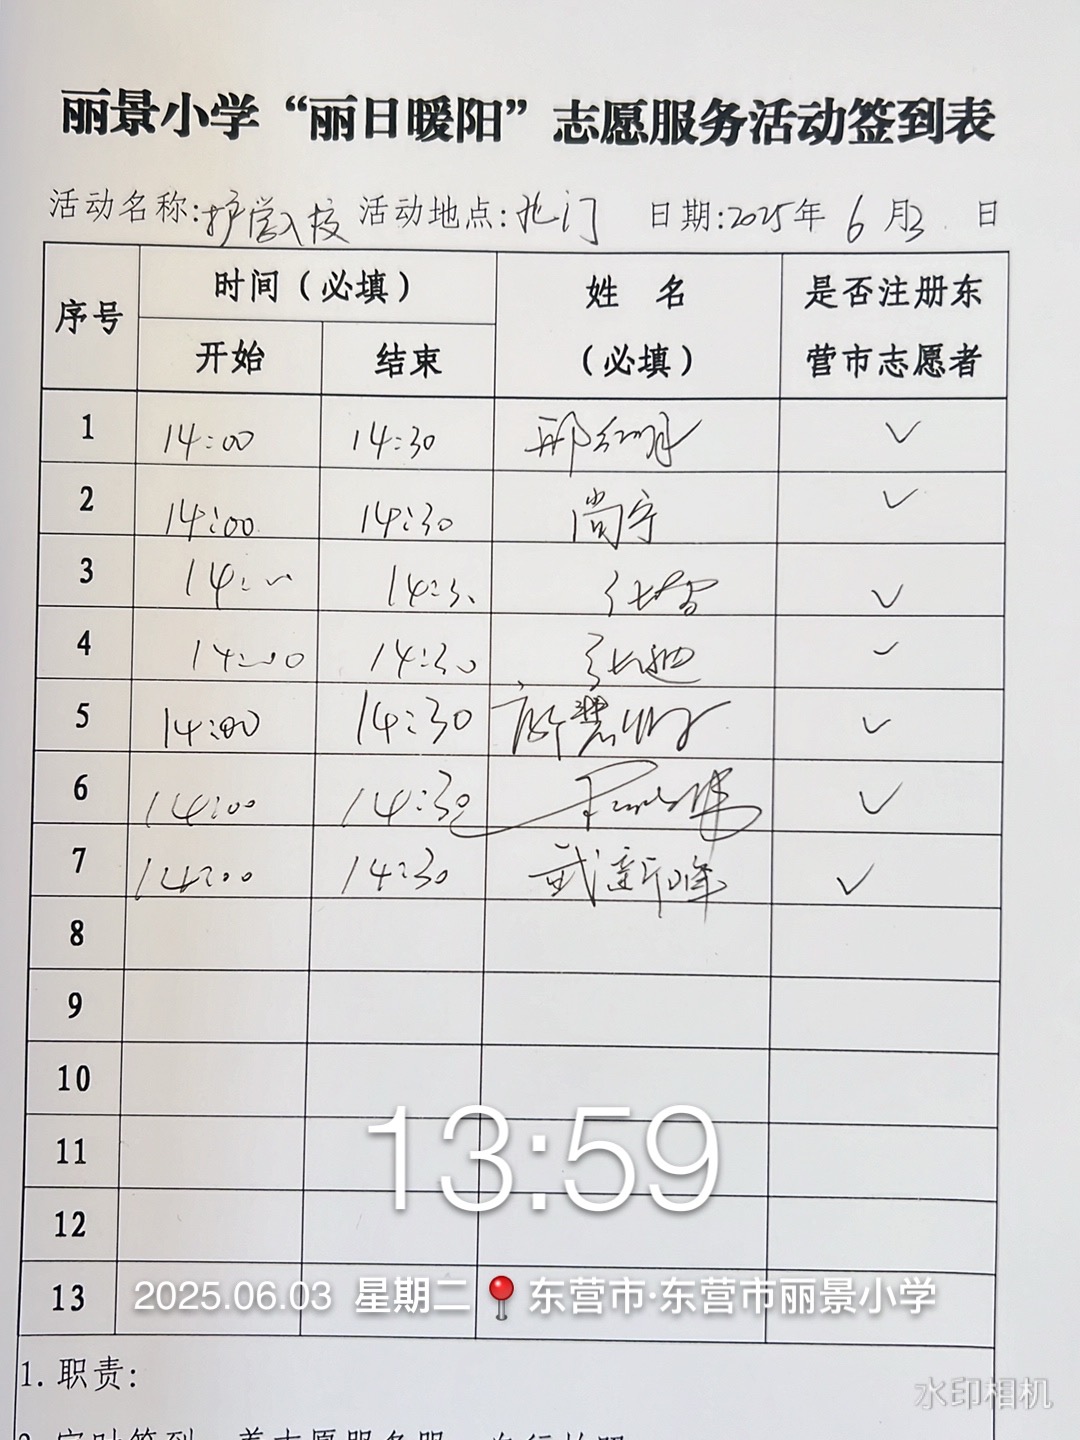 丽景小学“丽日暖阳”志愿服务活动签到表
活动名称:护学入校 活动地点:北门 日期:2025年 6 月3 日
序号 时间（必填） 姓 名（必填） 是否注册东营市志愿者
开始 结束
1 14:00 14:30 ✓
2 14:00 14:30 尚宁 ✓
3 14:00 14:30 ✓
4 14:00 14:30 ✓
5 14:00 14:30 ✓
6 14:00 14:30 ✓
7 14:00 14:30 武新峰 ✓
8
9
10
11
12
13
13:59
2025.06.03 星期二 东营市·东营市丽景小学
1. 职责:
水印相机